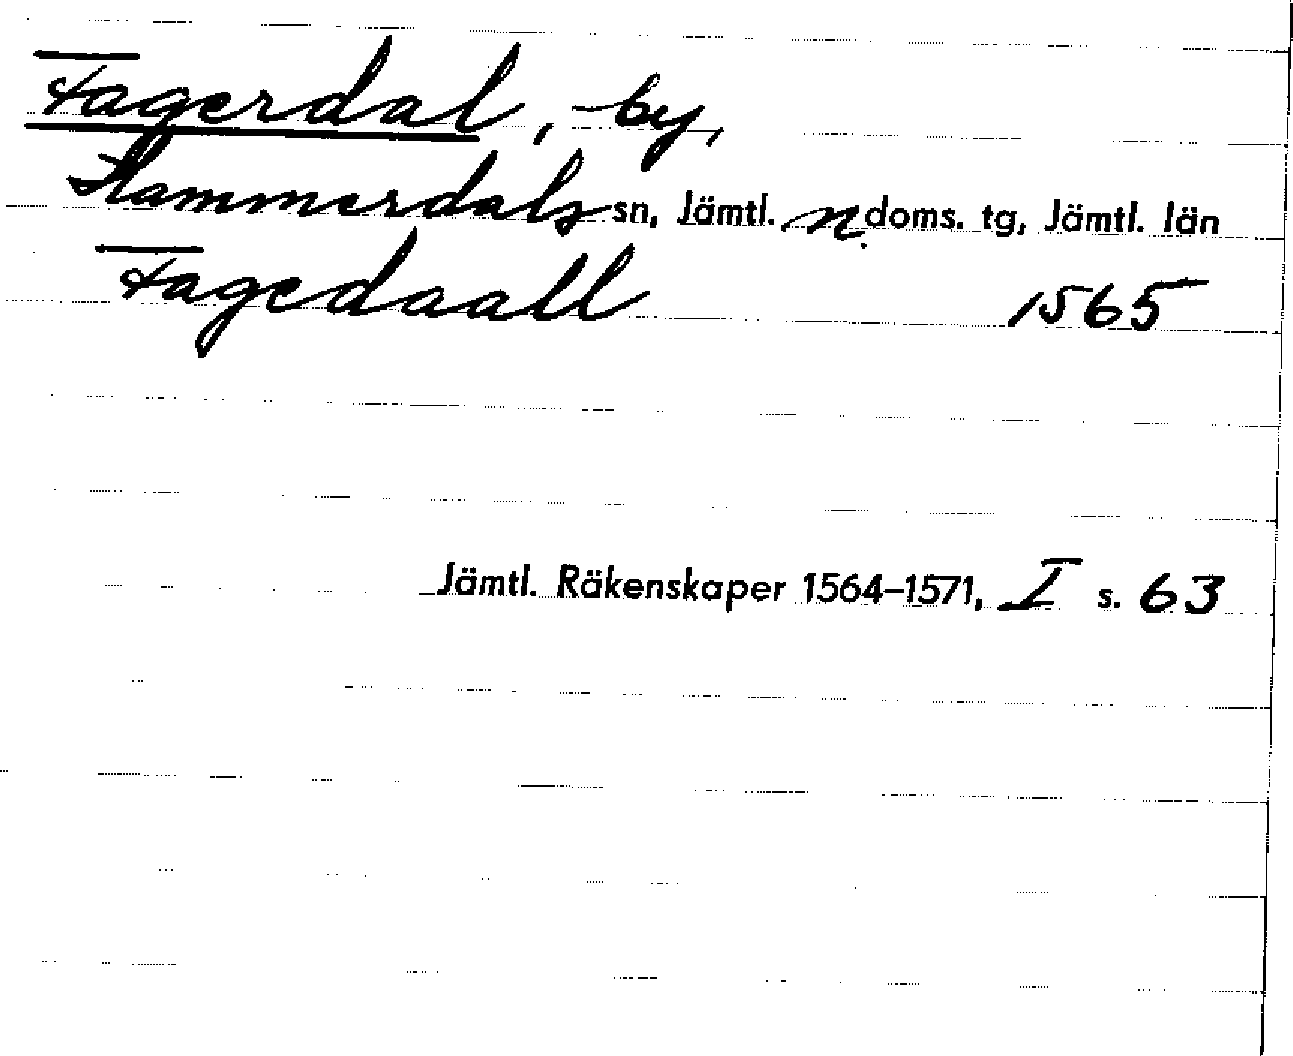 Fagerdal, by,
Hammerdals sn, Jämtl. n. doms. tg, Jämtl. län
Fagedaall 1565
Jämtl. Räkenskaper 1564–1571, I s. 63